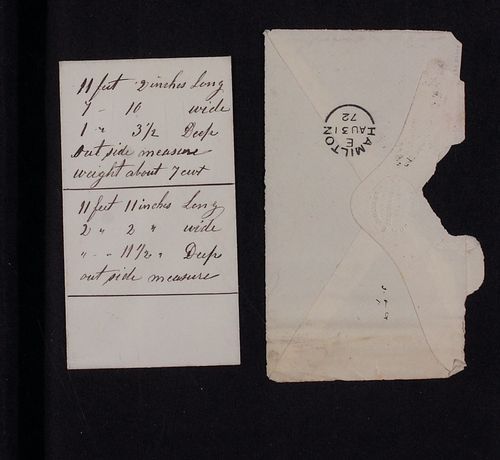 11 feet 2 inches Long
7 - 10 wide
1 " 3 1/2 Deep
out side measure
weight about 7 cwt
11 feet 11 inches Long
2 " 2 " wide
" - 11 1/2 " Deep
out side measure
HAMILTON
E
AU 31
72